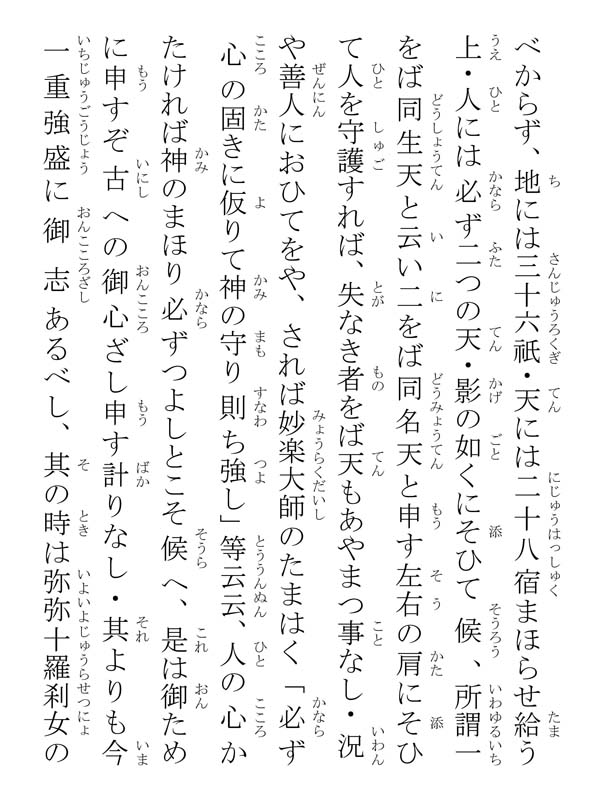 べからず、地には三十六祇・天には二十八宿まほらせ給う
上・人には必ず二つの天・影の如くにそひて候、所謂一
をば同生天と云い二をば同名天と申す左右の肩にそひ
て人を守護すれば、失なき者をば天もあやまつ事なし・況
や善人におひてをや、されば妙楽大師のたまはく「必ず
心の固きに仮りて神の守り則ち強し」等云云、人の心か
たければ神のまほり必ずつよしとこそ候へ、是は御ため
に申すぞ古への御心ざし申す計りなし・其よりも今
一重強盛に御志あるべし、其の時は弥弥十羅刹女の